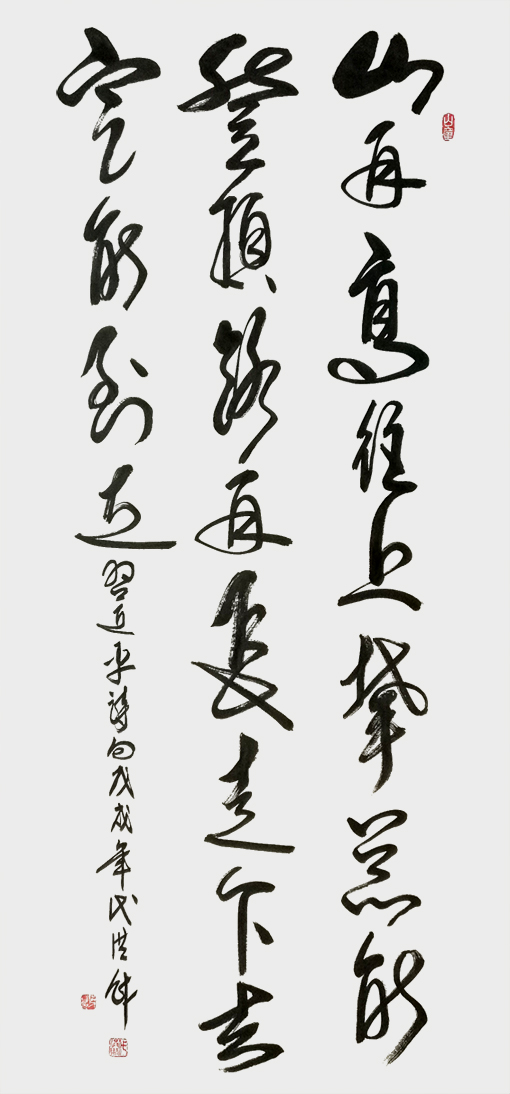 山再高往上攀总能
登頂路再長走下去
定能到达
習近平詩句戊戌年洪